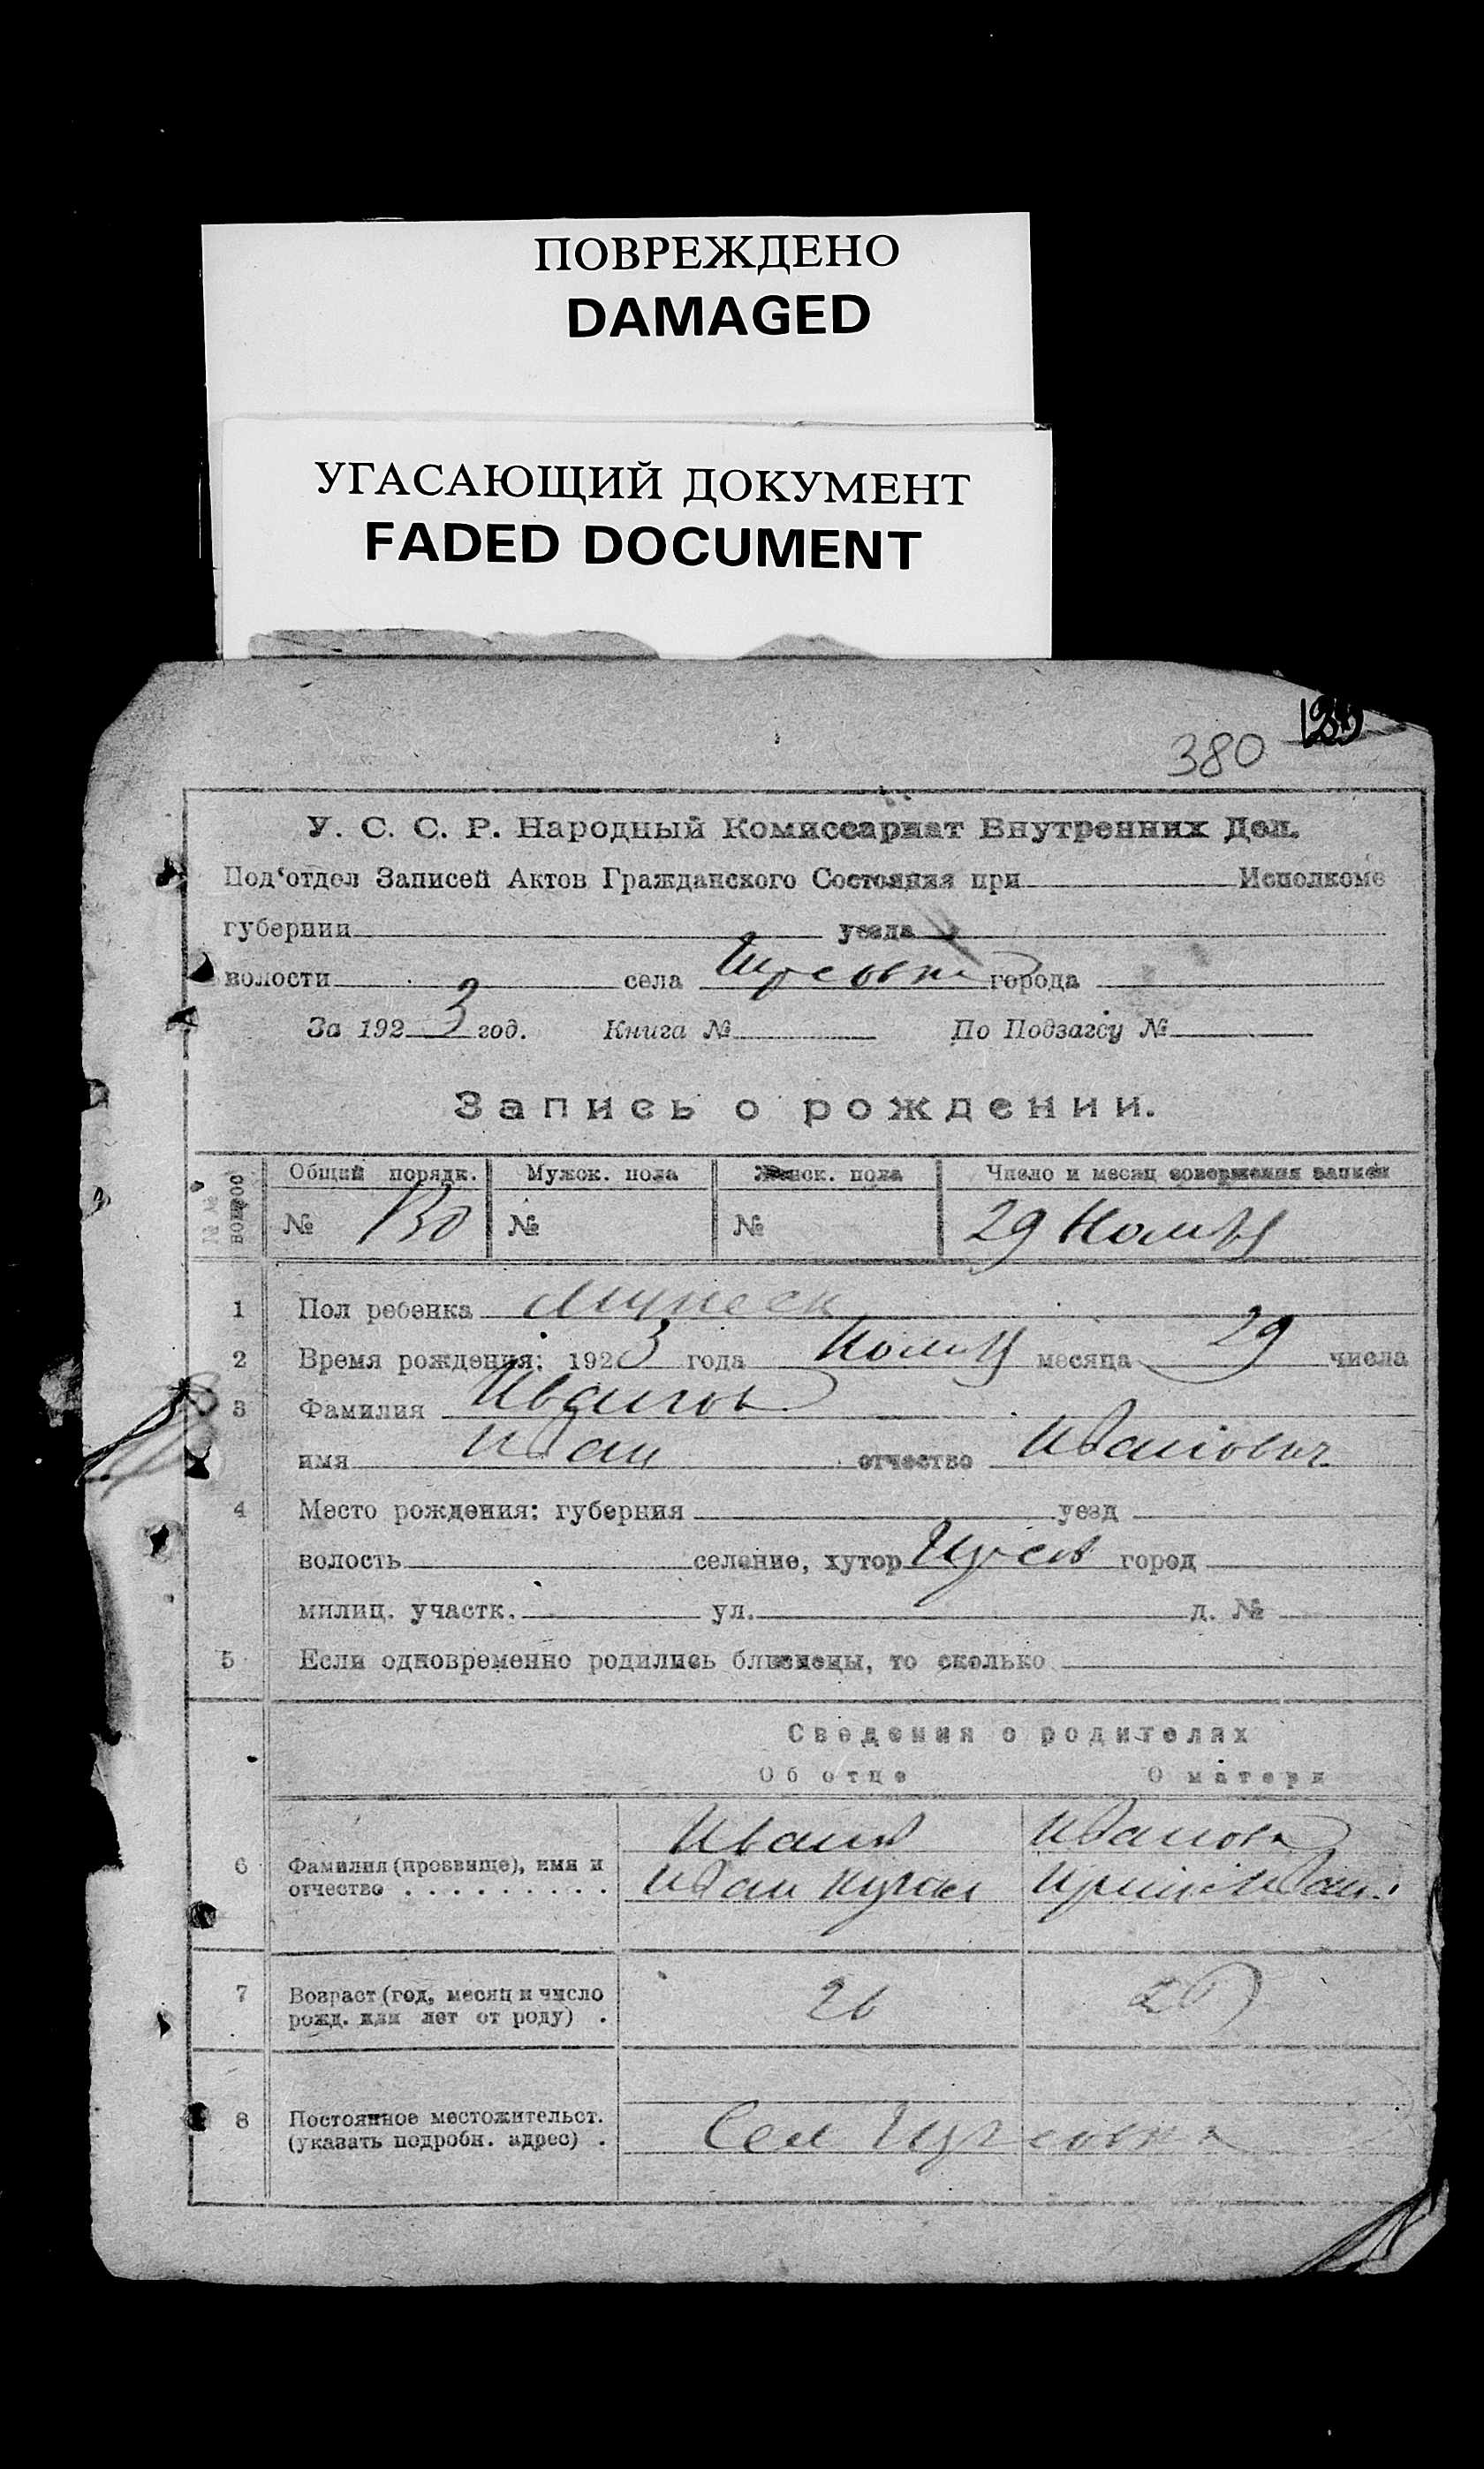 ПОВРЕЖДЕНО
DAMAGED
УГАСАЮЩИЙ ДОКУМЕНТ
FADED DOCUMENT
380
У. С. С. Р. Народный Комиссариат Внутренних Дел.
Под‘отдел Записей Актов Гражданского Состояния при Исполкоме
губернии уезда
волости села города
За 1923 год. Книга № По Подзагсу №
Запись о рождении.
№№ вопрос
Общий порядк. Мужск. пола Женск. пола Число и месяц совершения записи
№ 130 № № 29
1 Пол ребенка Мужеск
2 Время рождения: 1923 года месяца 29 числа
3 Фамилия Иванов
имя Иван отчество Иванович
4 Место рождения: губерния уезд
волость селение, хутор город
милиц. участк. ул. д. №
5 Если одновременно родились близнецы, то сколько
Сведения о родителях
Об отце О матери
6 Фамилия (прозвище), имя и отчество Иванов Иван Иванова
7 Возраст (год, месяц и число рожд. или лет от роду) 26
8 Постоянное местожительст. (указать подробн. адрес) Сел